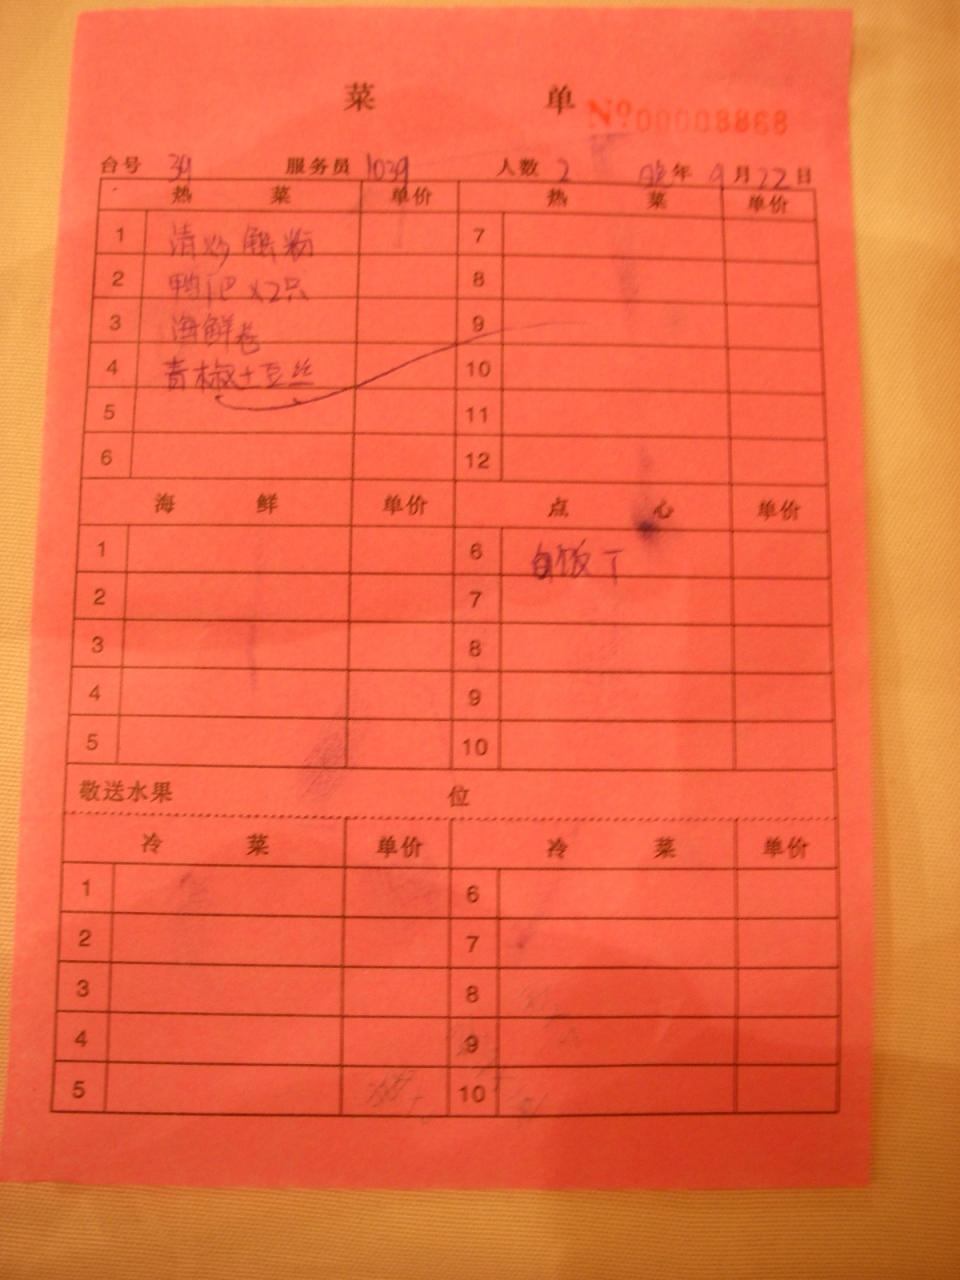 菜 单
No 00008868
台号 39 服务员 1039 人数 2 晚 年 9 月 22 日
热 菜 单价 热 菜 单价
1 清炒蟹粉 7
2 鸭下巴 x2只 8
3 海鲜卷 9
4 青椒土豆丝 10
5 11
6 12
海 鲜 单价 点 心 单价
1 6 白饭
2 7
3 8
4 9
5 10
敬送水果 位
冷 菜 单价 冷 菜 单价
1 6
2 7
3 8
4 9
5 10